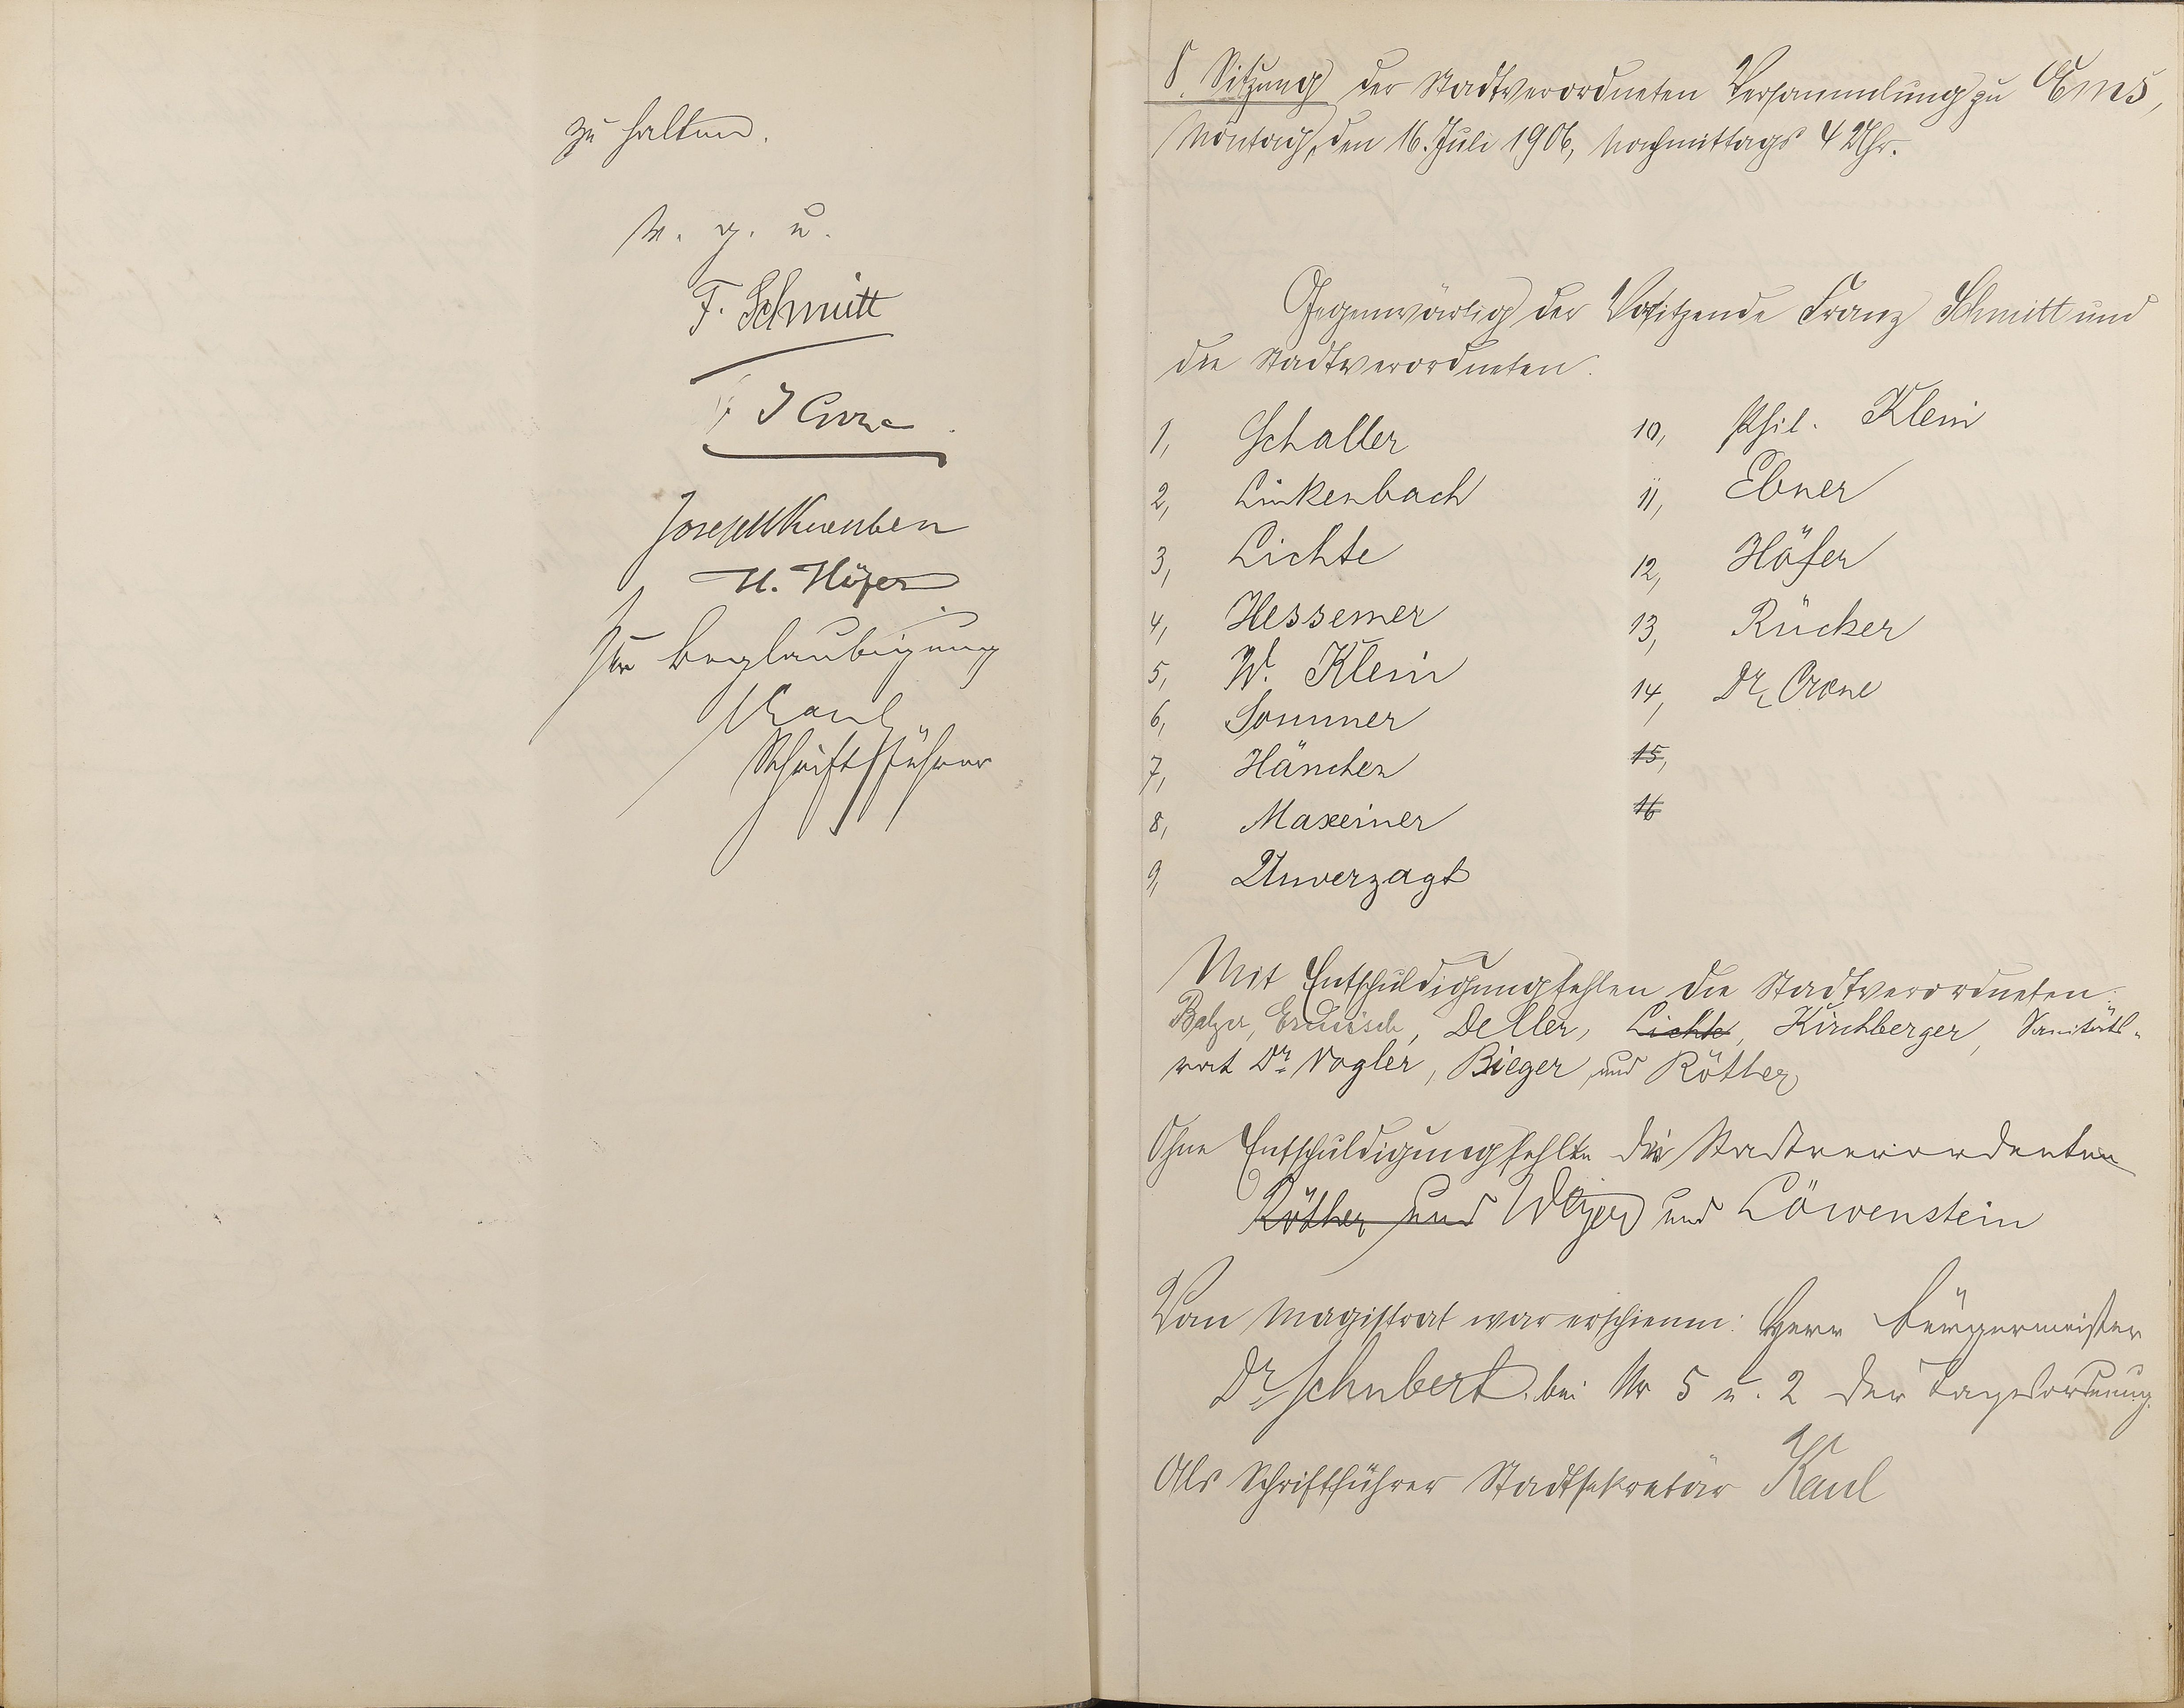 zu halten.
v. g. u.
F. Schmitt
H. Höfer
Zur Beglaubigung
Kaul
Schriftführer
8. Sitzung der Stadtverordneten Versammlung zu Ems,
Montag, den 16. Juli 1906, Nachmittags 4 Uhr.
Gegenwärtig der Vorsitzende Franz Schmitt und
die Stadtverordneten:
1, Schaller
2, Linkenbach
3, Lichte
4, Hessemer
5, W. Klein
6, Sommer
7, Hänchen
8, Maxeiner
9, Unverzagt
10, Phil. Klein
11, Ebner
12, Höfer
13, Rücker
14, Dr. Crone
15,
16
Mit Entschuldigung fehlen die Stadtverordneten:
Balzer, Ermisch, Deller, Lichte, Kirchberger, Sanitäts-
rat Dr. Vogler, Bieger und Röther
Ohne Entschuldigung fehlten die Stadtverordenten
Röther und und Löwenstein
Vom Magistrat war erschienen: Herr Bürgermeister
Dr. Schubert bei Nr 5 u. 2 der Tagesordnung.
Als Schriftführer Stadtsekretär Kaul